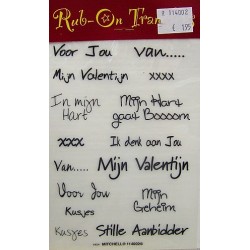 Rub-On Tran
# 114002
£ 1.95
Voor Jou Van.....
Mijn Valentijn xxxx
In mijn Hart
Mijn Hart gaat Booooom
xxx Ik denk aan Jou
Van..... Mijn Valentijn
Voor Jou Mijn Geheim
Kusjes
Kusjes Stille Aanbidder